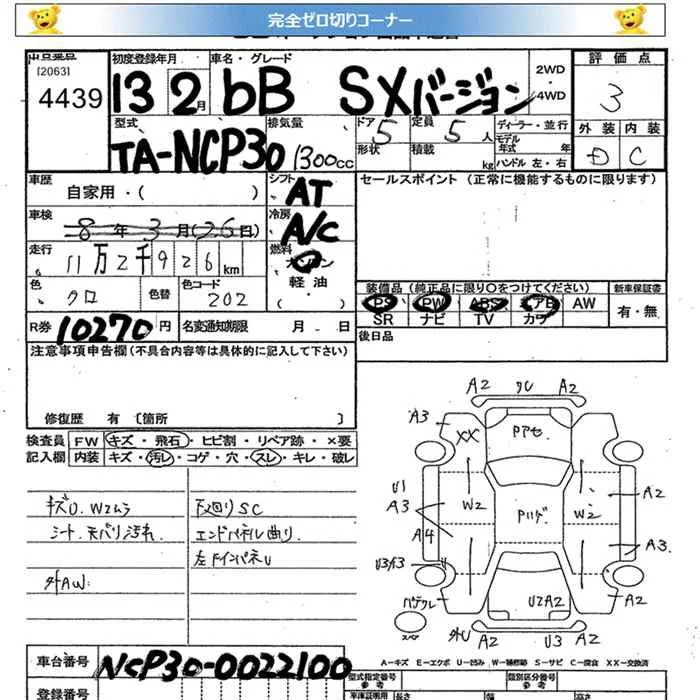 完全ゼロ切りコーナー
出品番号 初度登録年月 車名・グレード 評価点
[2063]
4439 13 2月 bB SXバージョン 2WD ・ 4WD 3
型式 排気量 ドア 定員 ディーラー・並行 外装 内装
TA-NCP30 1300cc 5 5人 モデル年式 年 D C
形状 積載 kg ハンドル 左・右
車歴 シフト セールスポイント (正常に機能するものに限ります)
自家用・( ) AT
車検 冷房
8年3月(26日) A/C
走行 燃料
11万2千926km ガソリン
軽油
色 色替 色コード ( ・ )
クロ 202
装備品(純正品に限り○をつけてください) 新車保証書
PS PW ABS エアB AW 有・無
SR ナビ TV カワ
R券 10270円 名変通知期限 月 日 後日品
注意事項申告欄(不具合内容等は具体的に記入して下さい)
修復歴 有 〔箇所 〕
検査員 FW キズ・飛石・ヒビ割・リペア跡・×要
記入欄 内装 キズ・汚レ・コゲ・穴・スレ・キレ・破レ
キズU.W2ムラ 下廻りSC
シート.天バリ汚れ. エンドパネル曲り
左ドインパネU
外AW:
A2 クU A2
A3 XX Pアセ
U1 A3 W2 Pハゲ W2 A2
A4 A3
U3 A3 U
バデクレ U2A2 A2
スペア 外U A2 U3 A2
A-キズ E-エクボ U-凹み W-補修跡 S-サビ C-腐食 XX-交換済
車台番号 NCP30-0022100
型式指定番号 類別区分番号
参考 参考
登録番号 車庫証明用 長さ 幅 高さ